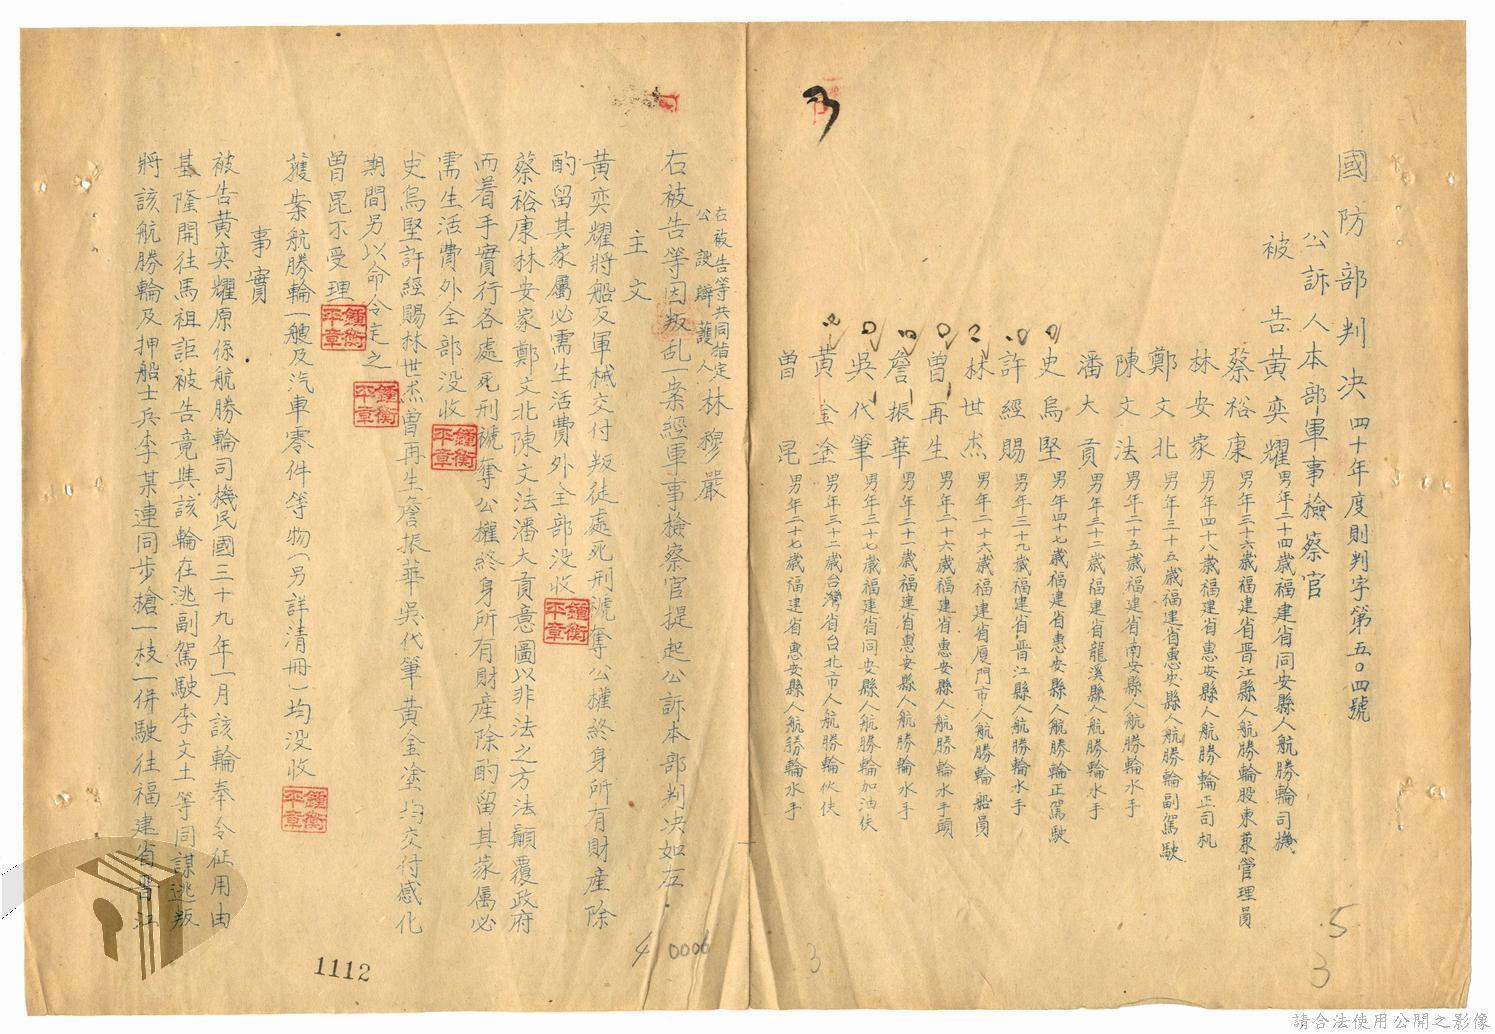 國防部判決 四十年度則判字第五〇四號
公訴人 本部軍事檢察官
被告 黃奕耀 男年二十四歲福建省同安縣人航勝輪司機
蔡裕康 男年三十六歲福建省晋江縣人航勝輪股東兼管理員
林安家 男年四十八歲福建省惠安縣人航勝輪正司机
鄭文北 男年三十五歲福建省惠安縣人航勝輪副駕駛
陳文法 男年二十五歲福建省南安縣人航勝輪水手
潘大貢 男年三十二歲福建省龍溪縣人航勝輪水手
史烏堅 男年四十七歲福建省惠安縣人航勝輪正駕駛
許經賜 男年三十九歲福建省晋江縣人航勝輪水手
林世杰 男年二十六歲福建省廈門市人航勝輪船員
曾再生 男年二十六歲福建省惠安縣人航勝輪水手頭
詹振華 男年二十一歲福建省惠安縣人航勝輪水手
吳代筆 男年三十七歲福建省同安縣人航勝輪加油伕
黃金塗 男年三十二歲台灣省台北市人航勝輪伙伕
曾昆 男年二十七歲福建省惠安縣人航勝輪水手
3
5
3
3
右被告等共同指定
公設辯護人 林穆嚴
右被告等因叛乱一案經軍事檢察官提起公訴本部判決如左.
主文
黃奕耀將船及軍械交付叛徒處死刑褫奪公權終身所有財產除
酌留其家屬必需生活費外全部没收
蔡裕康林安家鄭文北陳文法潘大貢意圖以非法之方法顚覆政府
而着手實行各處死刑褫奪公權終身所有財產除酌留其家属必
需生活費外全部没收
史烏堅許經賜林世杰曾再生詹振華吳代筆黃金塗均交付感化
期間另以命令定之
曾昆不受理
獲案航勝輪一艘及汽車零件等物(另詳清冊)均没收
事實
被告黃奕耀原係航勝輪司機民國三十九年一月該輪奉令征用由
基隆開往馬祖詎被告竟與該輪在逃副駕駛李文土等同謀逃叛
將該航勝輪及押船士兵李某連同步槍一枝一併駛往福建省晋江
鍾衡平章
鍾衡平章
鍾衡平章
鍾衡平章
鍾衡平章
4 0006
1112
請合法使用公開之影像